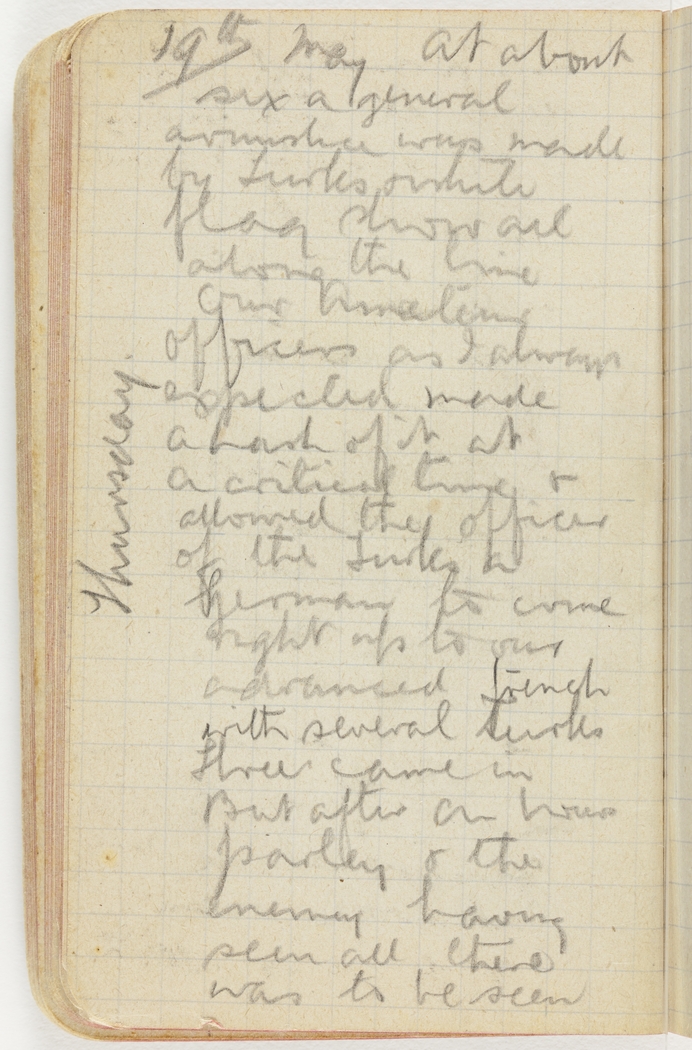 19th May At about
six a general
armistice was made
by Turks white
flag shown all
along the line
Our Amateur
officers as I always
expected made
a hash of it at
a critical time &
allowed the officer
of the Turks a
German to come
right up to our
advanced trench
with several Turks
three came in
But after an hours
parley & the
enemy having
seen all there
was to be seen
Thursday.